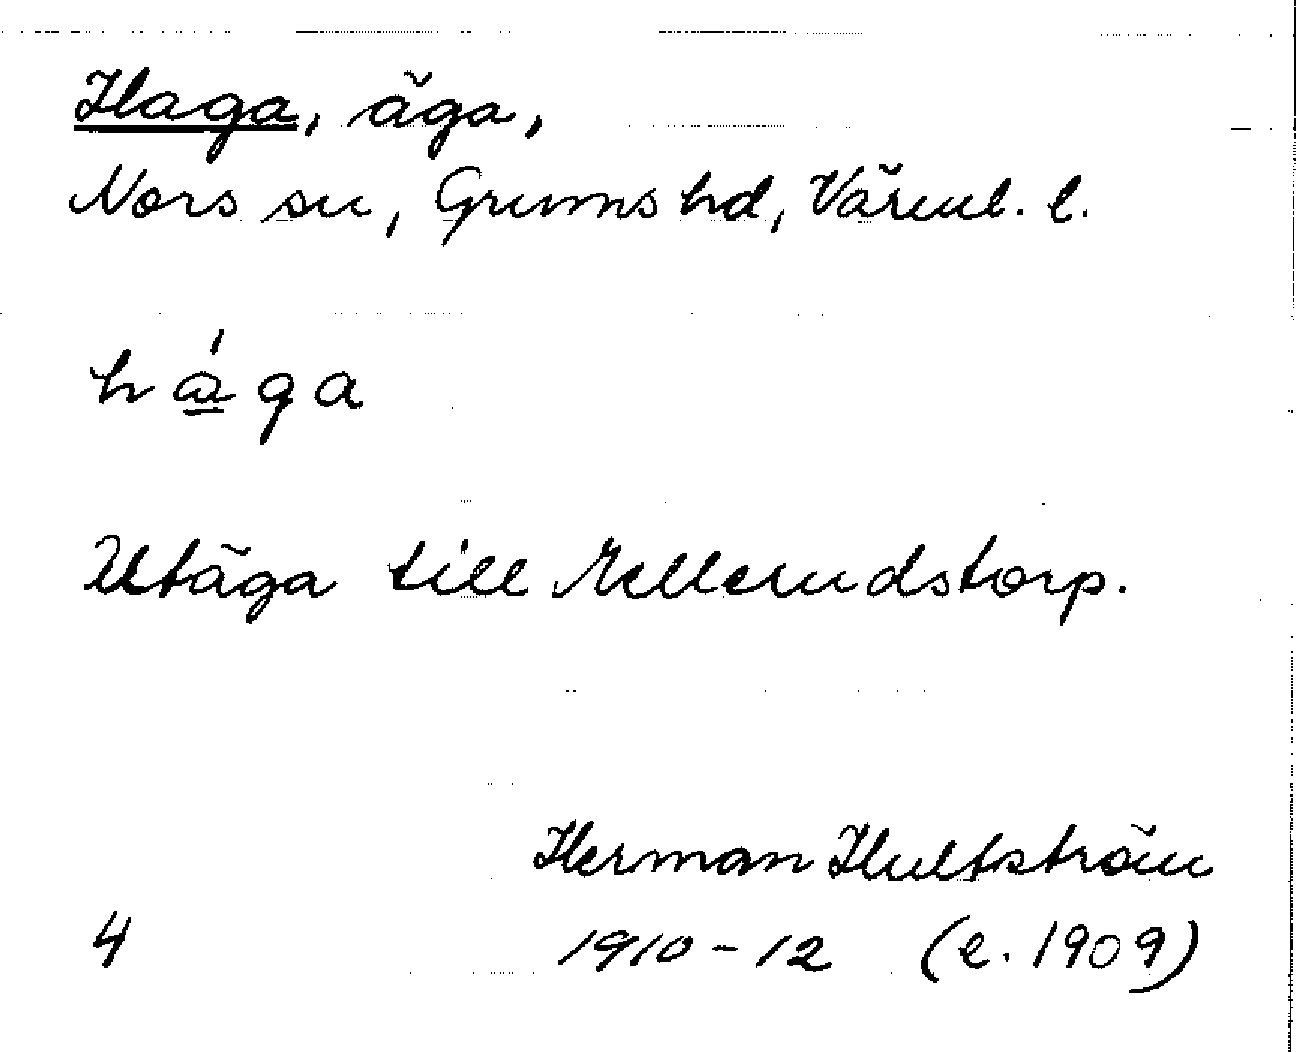 Haga, äga,
Nors sn, Grums hd, Värml. l.
há̲ga
Utäga till Mellerudstorp.
Herman Hultström
4 1910-12 (e. 1909)